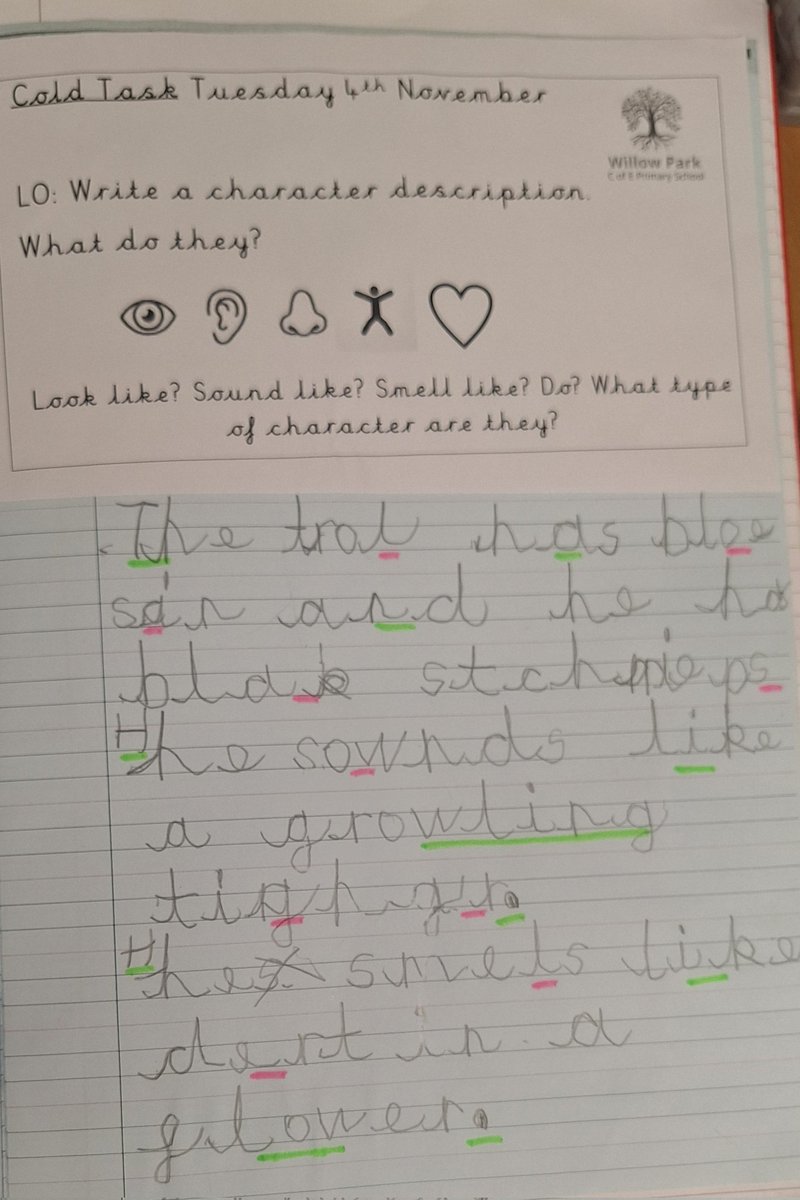 Cold Task Tuesday 4th November
Willow Park
C of E Primary School
LO: Write a character description.
What do they?
Look like? Sound like? Smell like? Do? What type
of character are they?
The trol has bloe
sain and he has
blak
H he sownds like
a growling
tighgr.
H he smels like
dert in a
flower.